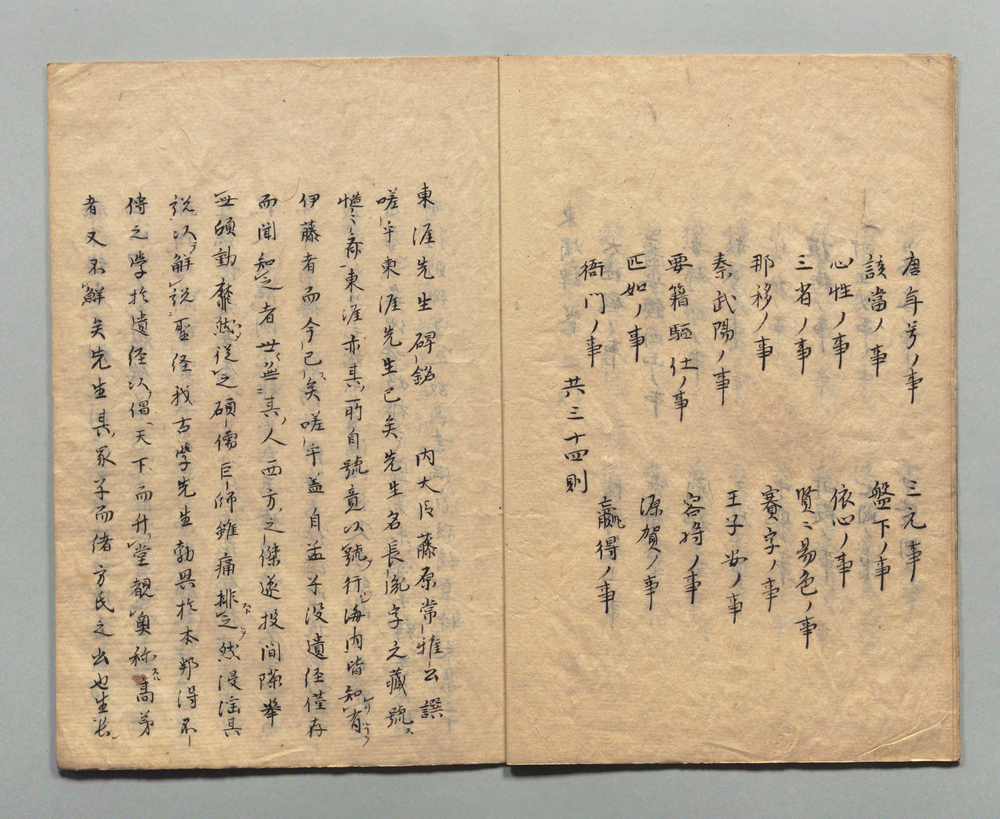 唐年号ノ事
三元事
該當ノ事
盤下ノ事
心性ノ事
依心ノ事
三省ノ事
賢〻易色ノ事
那移ノ事
賽字ノ事
秦武陽ノ事
王子安ノ事
要籍駆仕ノ事
容将ノ事
匹如ノ事
源賀ノ事
衙门ノ事
贏得ノ事
共三十四則
東涯先生碑銘 内大臣藤原常雅公譔
嗟乎東涯先生已矣先生名長胤字元藏號
慥〻斎東涯亦其所自號竟以號行海内皆知有
伊藤者而今已矣嗟乎盖自孟子没遺経僅存
而聞知之者世無其人西方之傑遂投間隙舉
靡然従之碩儒巨師雖痛排之然浸滛其
説以解説聖経我古學先生勃興於本邦得不
傳之學於遺经以倡天下而升堂覩奥称高弟
者又不鮮矣先生其冢子而緒方氏之出也生長